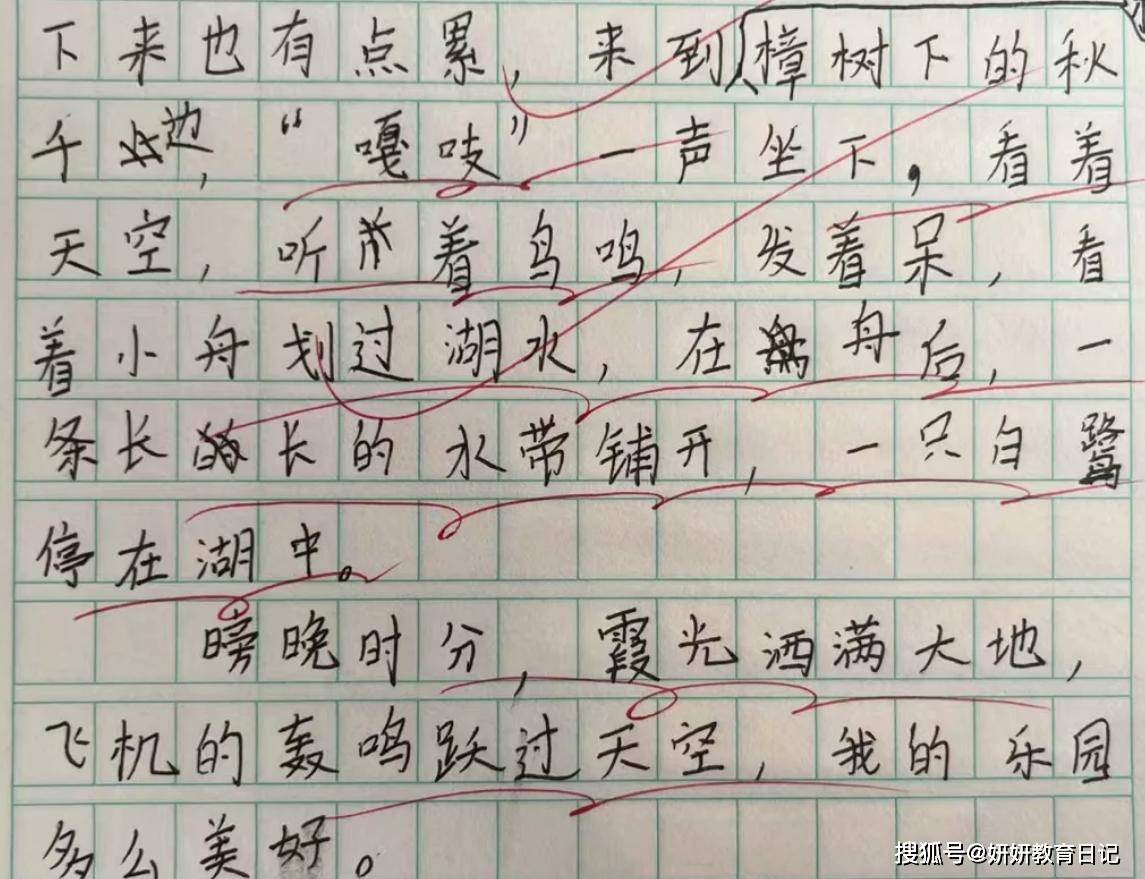 下来也有点累，来到樟树下的秋
千边，“嘎吱”一声坐下，看着
天空，听着鸟鸣，发着呆，看
着小舟划过湖水，在舟后，一
条长长的水带铺开，一只白鹭
停在湖中。
嗙晚时分，霞光洒满大地，
飞机的轰鸣跃过天空，我的乐园
多么美好。
搜狐号@妍妍教育日记